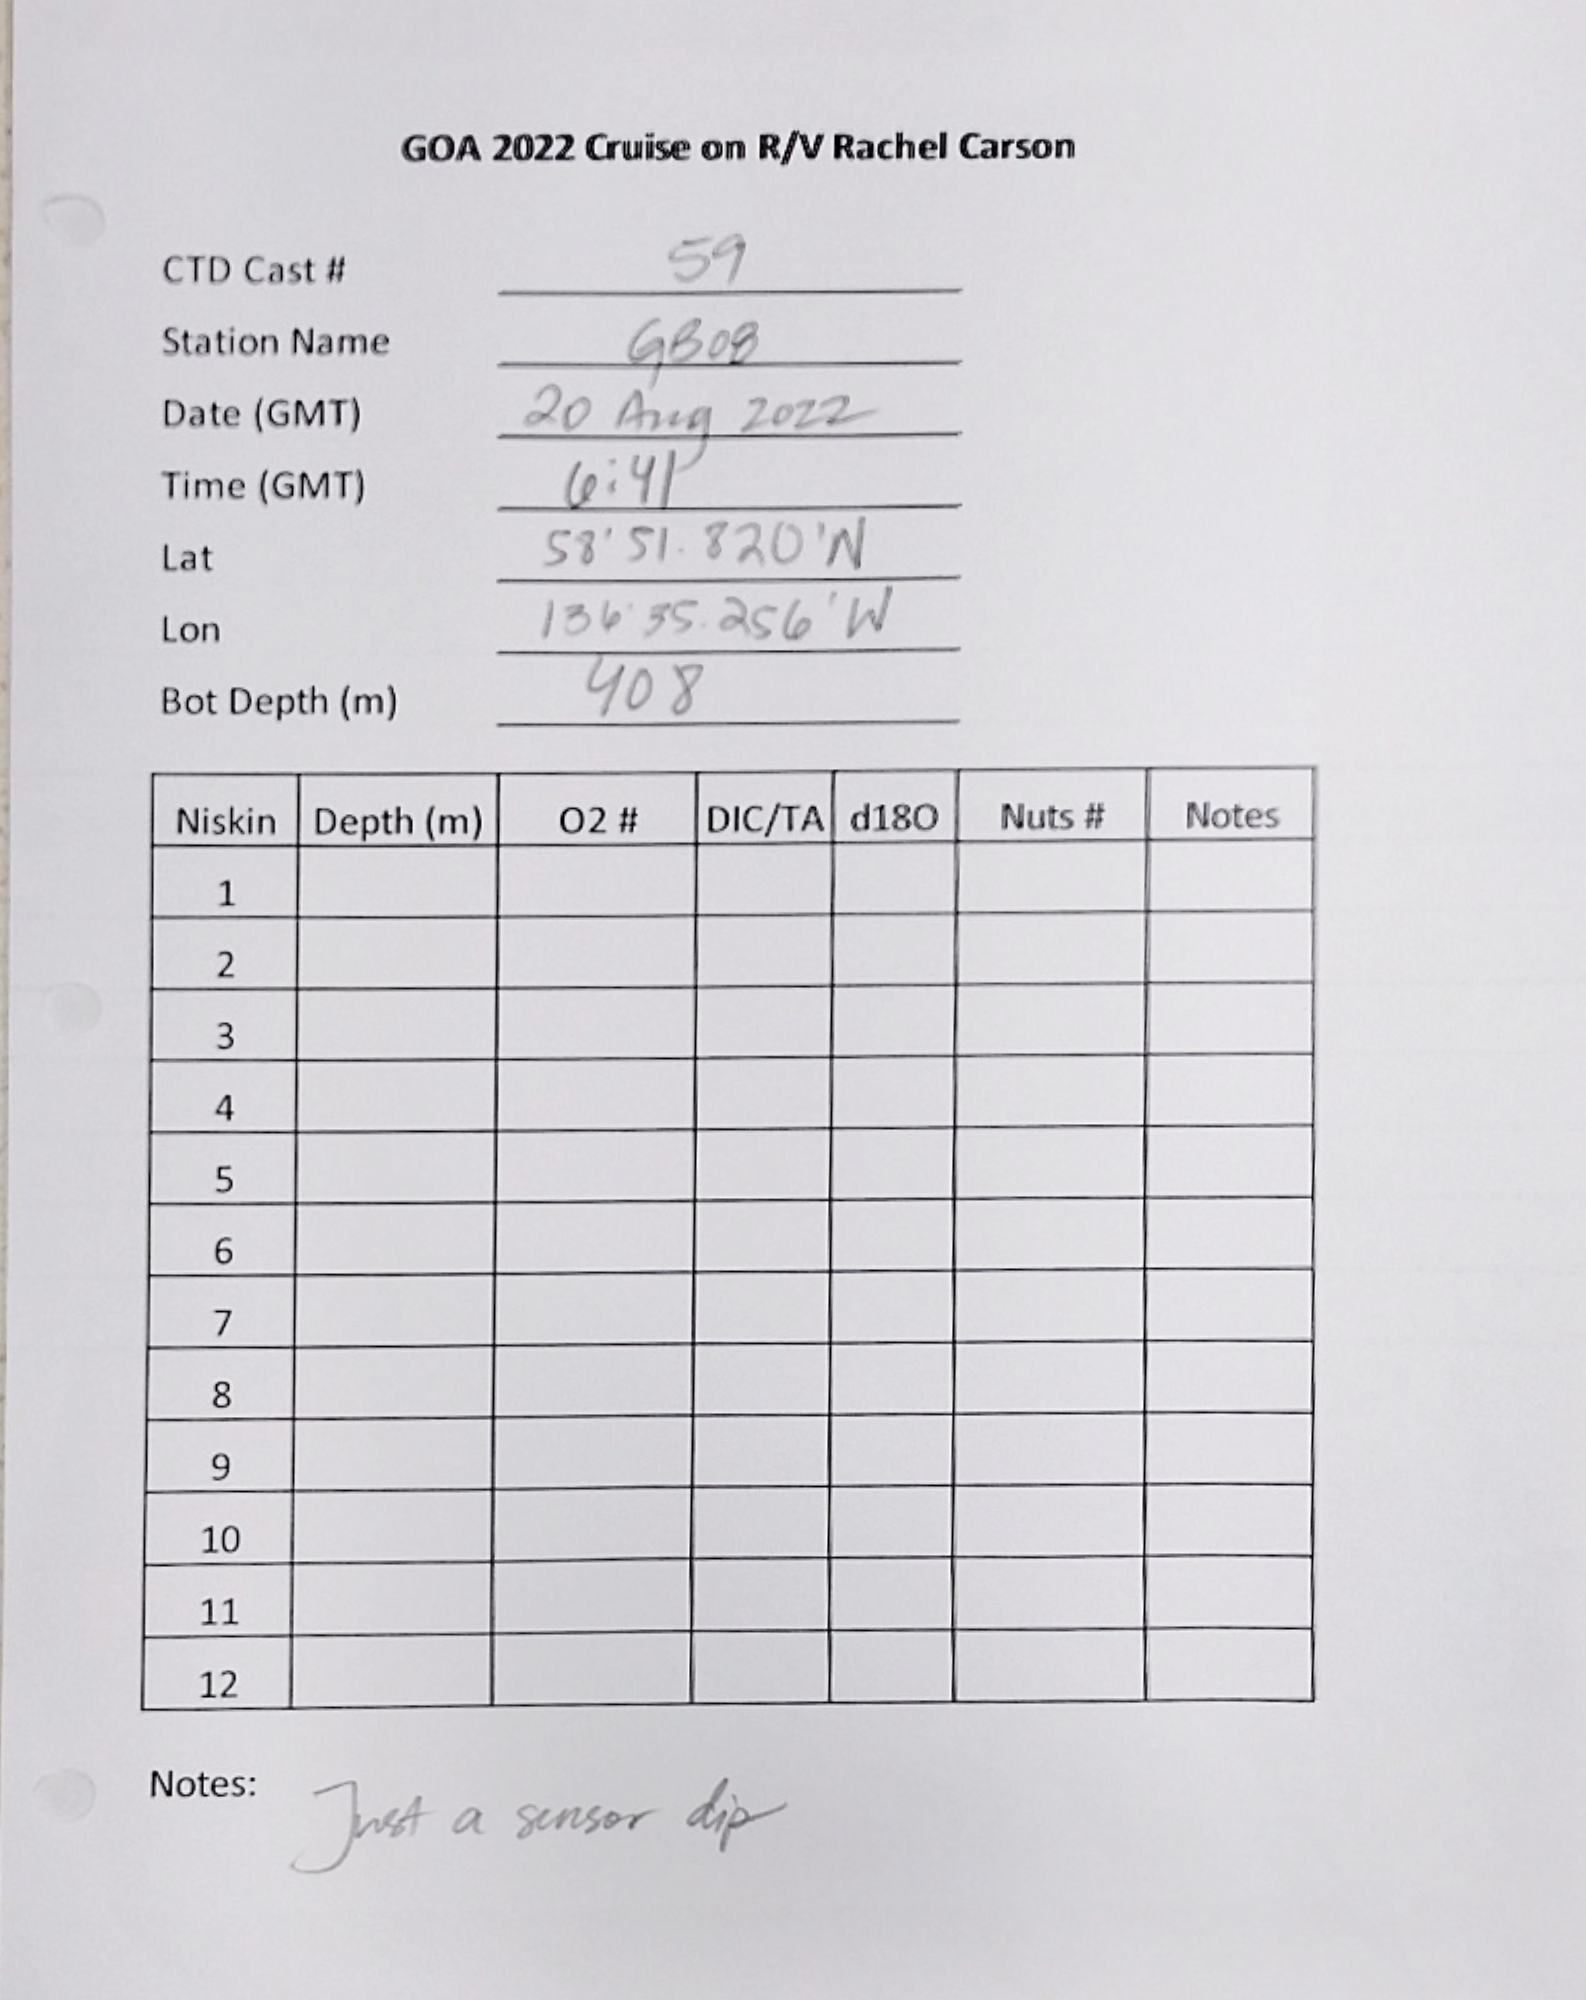 GOA 2022 Cruise on R/V Rachel Carson
CTD Cast # 59
Station Name GB08
Date (GMT) 20 Aug 2022
Time (GMT) 6:41
Lat 58°51.820'N
Lon 136°35.256'W
Bot Depth (m) 408
Niskin Depth (m) O2 # DIC/TA d18O Nuts # Notes
1
2
3
4
5
6
7
8
9
10
11
12
Notes: Just a sensor dip